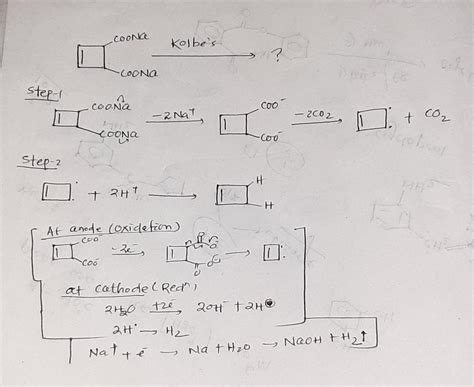 COONa
Kolbe's
?
COONa
Step-1
COONa
COONa
-2Na⁺
COO⁻
COO⁻
-2CO₂
+ CO₂
Step-2
+ 2H⁺
H
H
At anode (oxidation)
COO⁻
COO⁻
-2e⁻
at cathode (Redⁿ)
2H₂O +2e⁻ → 2OH⁻ + 2H
2H· → H₂
Na⁺ + e⁻ → Na + H₂O → NaOH + H₂↑